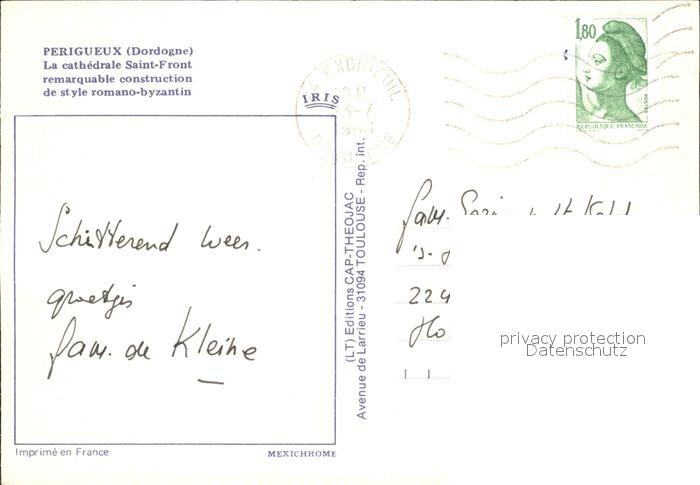 PERIGUEUX (Dordogne)
La cathédrale Saint-Front
remarquable construction
de style romano-byzantin
IRIS
EXCIDEUIL
DORDOGNE
1,80
POSTES
REPUBLIQUE FRANÇAISE
Schitterend weer.
groetjes
fam. de Kleine
(LT) Editions CAP-THEOJAC
Avenue de Larrieu - 31094 TOULOUSE - Rep. int.
fam.
's-
224
Ho
privacy protection
Datenschutz
Imprimé en France
MEXICHROME